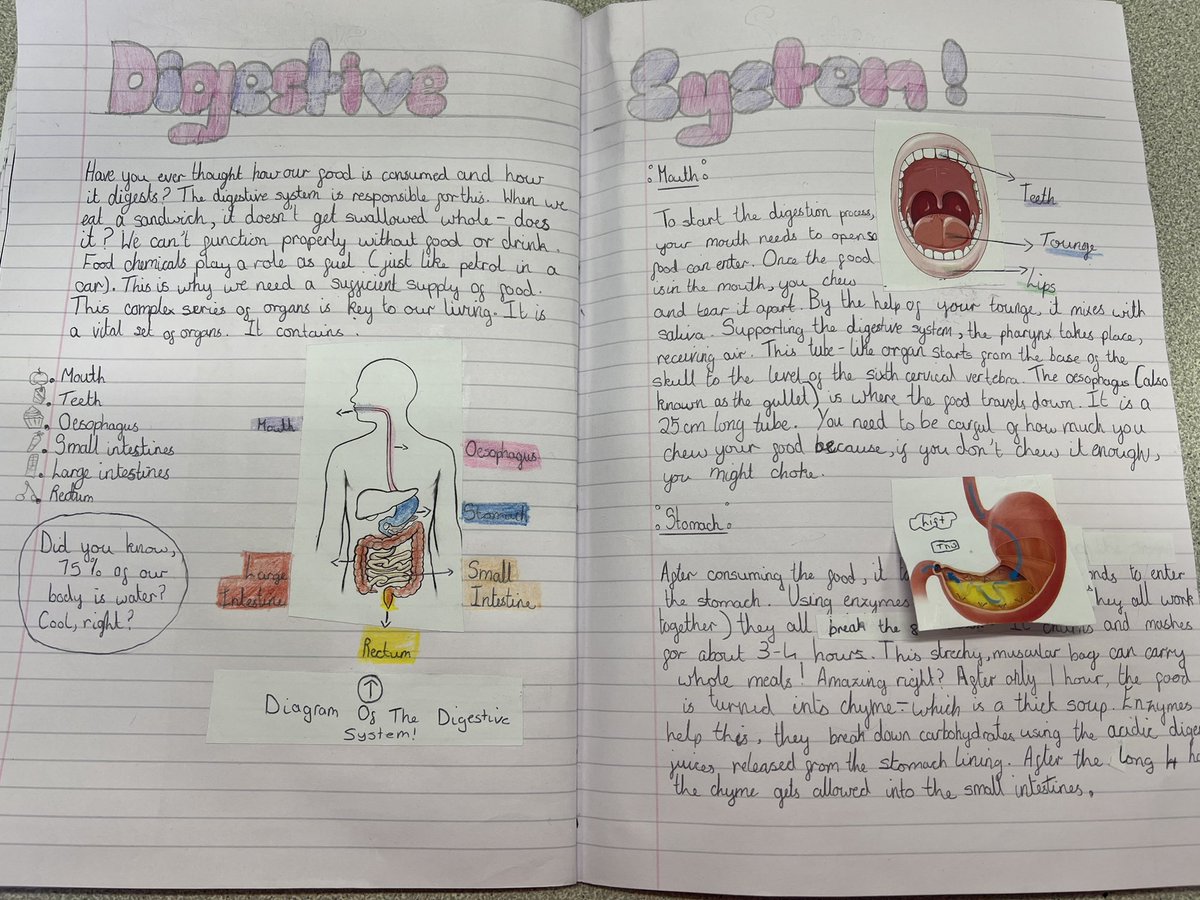 Digestive
Have you ever thought how our food is consumed and how
it digests? The digestive system is responsible for this. When we
eat a sandwich, it doesn't get swallowed whole - does
it? We can't function properly without food or drink.
Food chemicals play a role as fuel (just like petrol in a
car). This is why we need a sufficient supply of food.
This complex series of organs is key to our living. It is
a vital set of organs. It contains:
Mouth
Teeth
Oesophagus
Small intestines
Large intestines
Rectum
Did you know,
75% of our
body is water?
Cool, right?
Mouth
Oesophagus
Stomach
Large
Intestine
Small
Intestine
Rectum
Diagram Of The Digestive
System!
System!
Mouth
Teeth
Tounge
Lips
To start the digestion process,
your mouth needs to open so
food can enter. Once the food
is in the mouth, you chew
and tear it apart. By the help of your tounge, it mixes with
saliva. Supporting the digestive system, the pharynx takes place,
receiving air. This tube-like organ starts from the base of the
skull to the level of the sixth cervical vertebra. The oesophagus (also
known as the gullet) is where the food travels down. It is a
25cm long tube. You need to be carful of how much you
chew your food because, if you don't chew it enough,
you might choke.
Stomach
After consuming the food, it to onds to enter
the stomach. Using enzymes they all work
together) they all break the It churns and mashes
for about 3-4 hours. This strechy, muscular bag can carry
whole meals! Amazing right? After only 1 hour, the food
is turned into chyme - which is a thick soup. Enzymes
help this, they break down carbohydrates using the acidic diges
juices released from the stomach lining. After the long 4 ho
the chyme gets allowed into the small intestines.